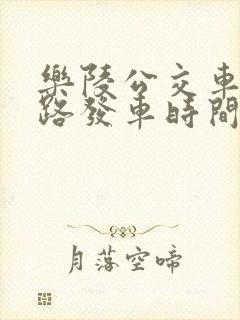 樂陵公交車
路發車時間
月落空啼